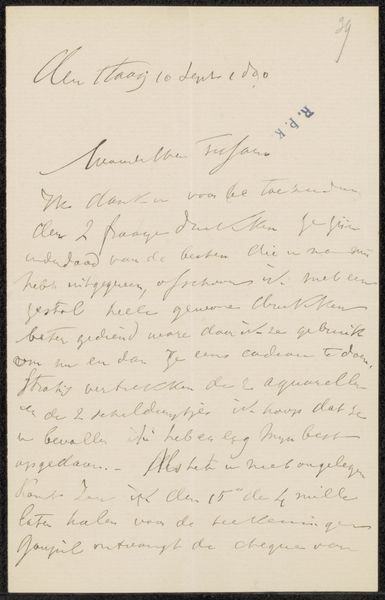 39
den Haag 10 Sept 1890
R.P.K
Waarde Heer
Ik dank u voor de toezending
der 2 fraaye drukken ze zijn
inderdaad van de besten die u van mij
hebt uitgegeven, ofschoon ik met een
getal heele gewone drukken
beter gediend ware daar ik ze gebruik
om nu en dan ze eens cadeau te doen.
Straks vertrekken de 2 aquarellen
en de 2 schilderijtjes ik hoop dat ze
u bevallen ik heb er erg mijn best
op gedaan. — Als het u niet ongelegen
komt zou ik den 15n de 4 mille
laten halen voor de teekeningen
Goupil ontvangt de cheque van